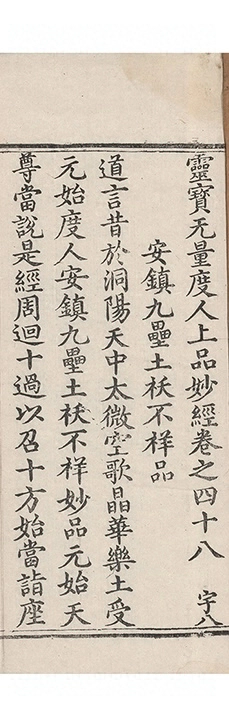 靈寶无量度人上品妙經卷之四十八 字八
安鎮九壘土袄不祥品
道言昔於洞陽天中太微空歌晶華樂土受
元始度人安鎮九壘土袄不祥妙品元始天
尊當說是經周迴十過以召十方始當詣座